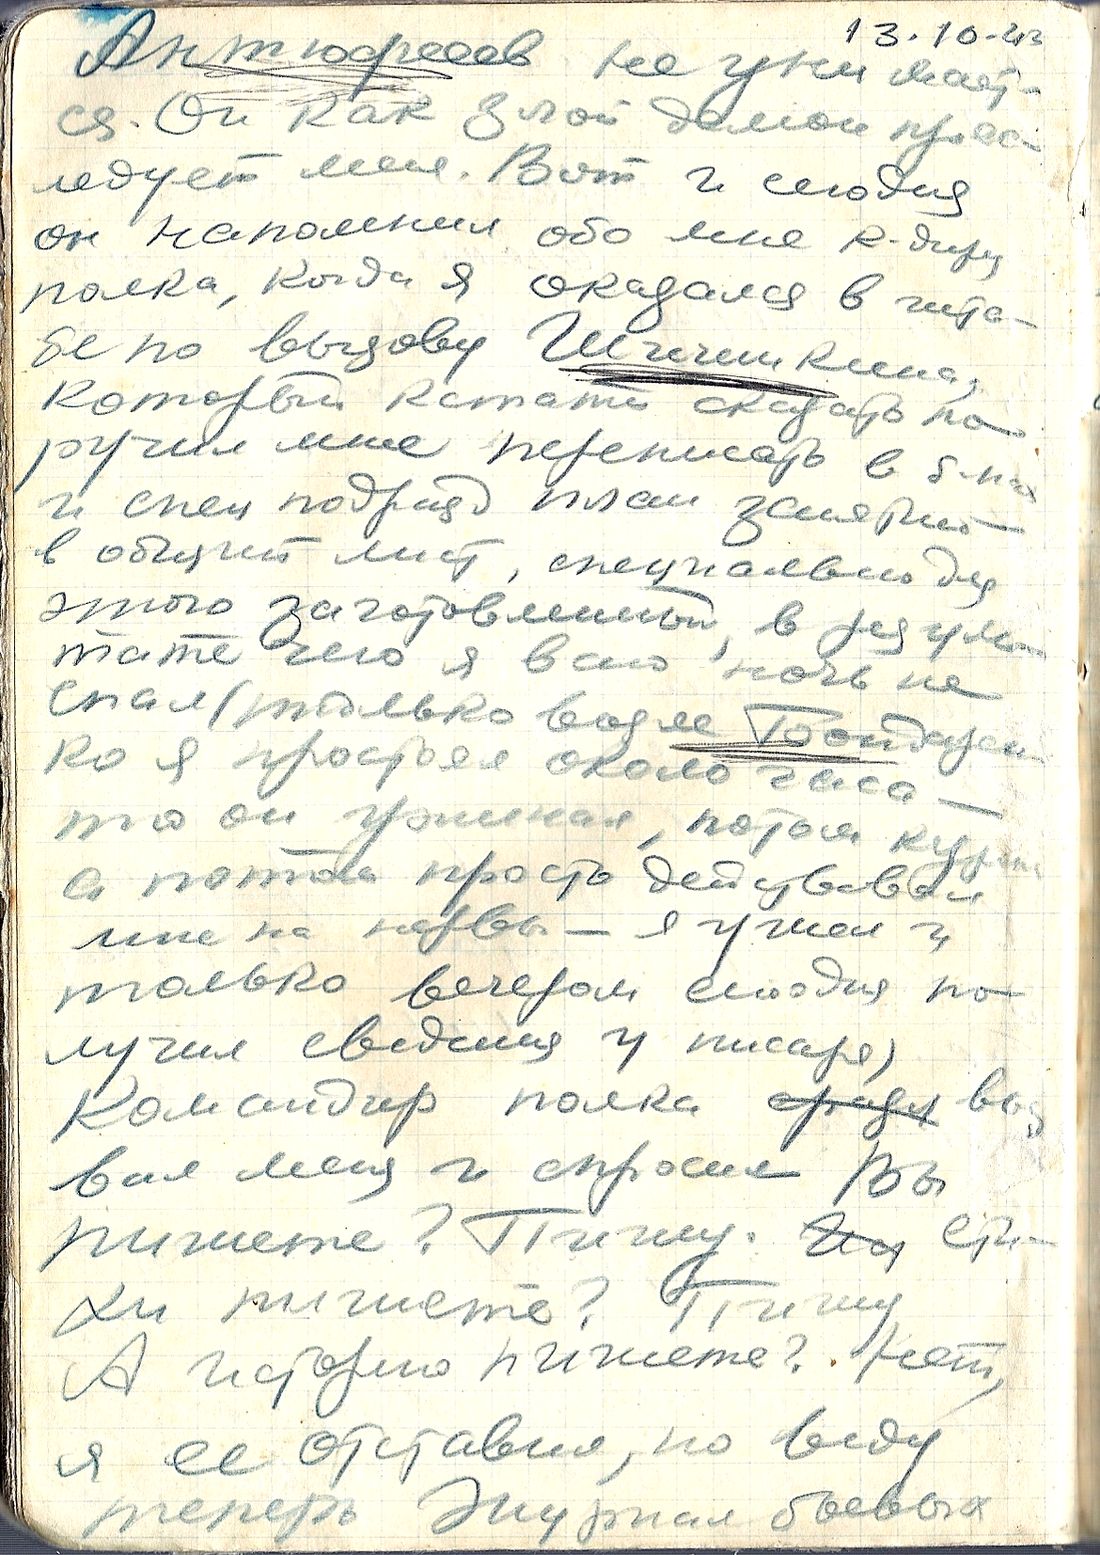 13.10.43
Антюфеев не унимает-
ся. Он как злой демон прес-
ледует меня. Вот и сегодня
он напомнил обо мне к-диру
полка, когда я оказался в шта-
бе по вызову Шишкина,
который кстати сказать по-
ручил мне переписать в б-нах
и спец подразд план занятий
в общий лист, специально для
этого заготовленный, в резуль-
тате чего я всю ночь не
спал (только возле Бондарен-
ко я простоял около часа –
то он ужинал, потом курил
а потом просто действовал
мне на нервы – я ушел и
только вечером сегодня по-
лучил сведения у писаря)
Командир полка сразу выз
вал меня и спросил Вы
пишете? Пишу. Сти-
хи пишете? Пишу
А историю пишете? Нет,
я ее отставил, но веду
теперь Журнал боевых